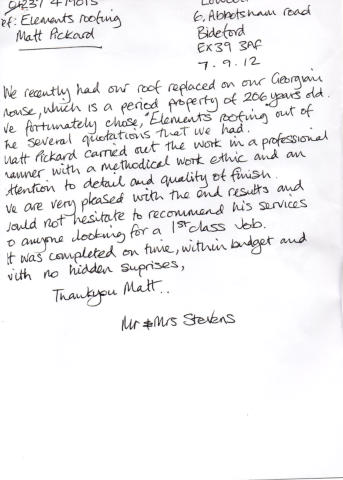 ef: Elements roofing
Matt Pickard
6, Abbotsham road
Bideford
EX39 3AF
7.9.12
We recently had our roof replaced on our Georgian
house, which is a period property of 206 years old.
We fortunately chose, "Elements" roofing out of
he several quotations that we had.
Matt Pickard carried out the work in a professional
anner with a methodical work ethic and an
ttention to detail and quality of finish.
ve are very pleased with the end results and
ould not hesitate to recommend his services
o anyone looking for a 1st class job.
It was completed on time, within budget and
vith no hidden suprises,
Thankyou Matt..
Mr & Mrs Stevens